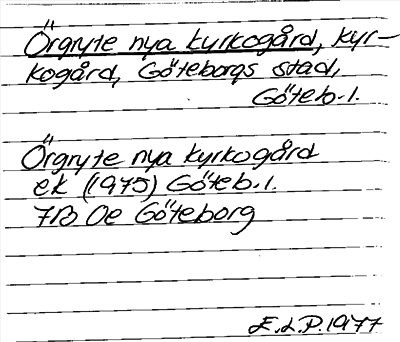 Örgryte nya kyrkogård, kyr-
kogård, Göteborgs stad,
Göteb. l.
Örgryte nya kyrkogård
ek (1975) Göteb. l.
7B 0e Göteborg
E.L.P. 1977